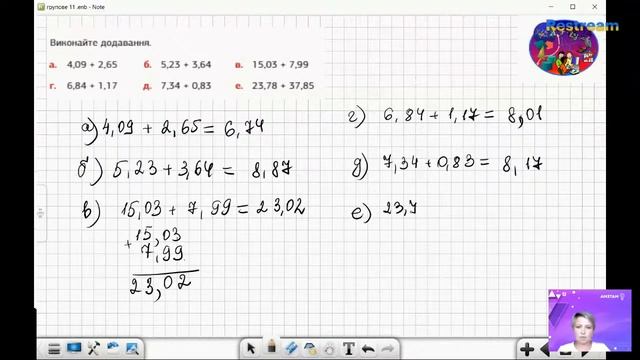 групове 11.enb - Note
Restream
Виконайте додавання.
а. 4,09 + 2,65 б. 5,23 + 3,64 в. 15,03 + 7,99
г. 6,84 + 1,17 д. 7,34 + 0,83 е. 23,78 + 37,85
а) 4,09 + 2,65 = 6,74
б) 5,23 + 3,64 = 8,87
в) 15,03 + 7,99 = 23,02
+ 15,03
7,99
23,02
г) 6,84 + 1,17 = 8,01
д) 7,34 + 0,83 = 8,17
е) 23,7